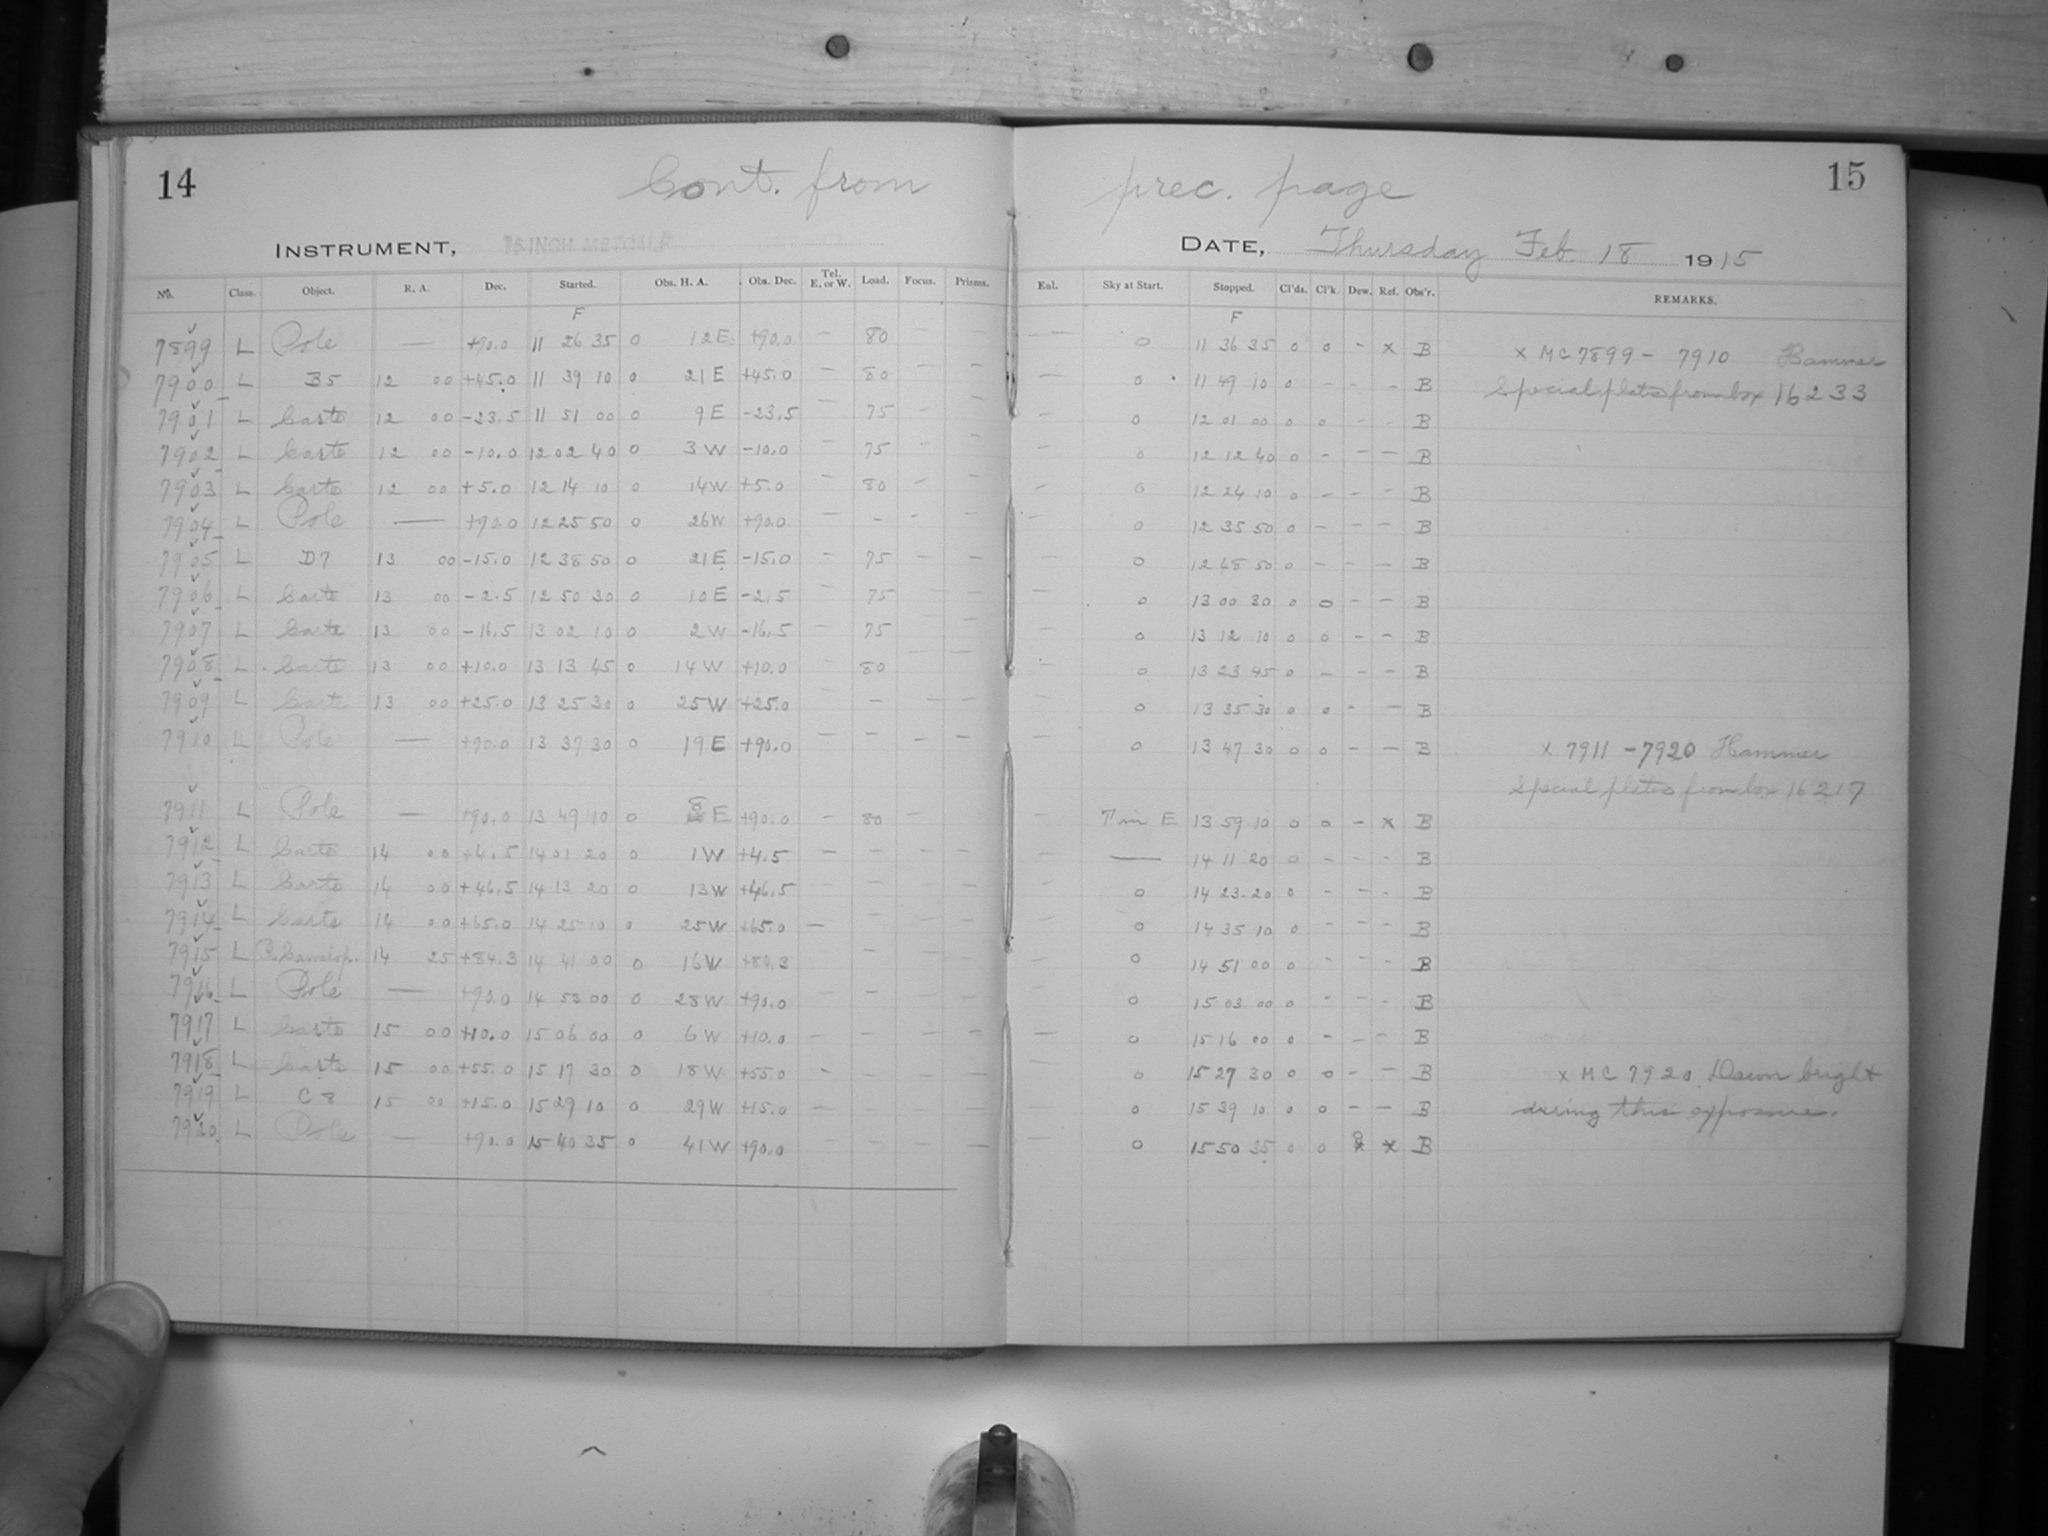 14 Cont. from prec. page 15
INSTRUMENT, 16-INCH METCALF DATE, Thursday Feb. 18 1915
No. Class. Object. R. A. Dec. Started. Obs. H. A. Obs. Dec. Tel. E. or W. Load. Focus. Prisms. Enl. Sky at Start. Stopped. Cl'ds. Cl'k. Dew. Ref. Obs'r. REMARKS.
F F
7899 L Pole — +90.0 11 26 35 0 12 E +90.0 — 80 — — — 0 11 36 35 0 0 - x B x MC 7899 - 7910 Hammer
7900 L B5 12 00 +45.0 11 39 10 0 21 E +45.0 — 80 — — — 0 11 49 10 0 - - - B Special plates from box 16233
7901 L Carte 12 00 -23.5 11 51 00 0 9 E -23.5 — 75 — — — 0 12 01 00 0 0 - - B
7902 L Carte 12 00 -10.0 12 02 40 0 3 W -10.0 — 75 — — — 0 12 12 40 0 - - - B
7903 L Carte 12 00 +5.0 12 14 10 0 14 W +5.0 — 80 — — — 0 12 24 10 0 - - - B
7904 L Pole — +90.0 12 25 50 0 26 W +90.0 — - - — — 0 12 35 50 0 - - - B
7905 L D7 13 00 -15.0 12 38 50 0 21 E -15.0 — 75 — — — 0 12 48 50 0 - - - B
7906 L Carte 13 00 -2.5 12 50 30 0 10 E -2.5 — 75 — — — 0 13 00 30 0 0 - - B
7907 L Carte 13 00 -16.5 13 02 10 0 2 W -16.5 — 75 — — — 0 13 12 10 0 0 - - B
7908 L Carte 13 00 +10.0 13 13 45 0 14 W +10.0 — 80 — — — 0 13 23 45 0 - - - B
7909 L Carte 13 00 +25.0 13 25 30 0 25 W +25.0 — — — — — 0 13 35 30 0 0 - - B
7910 L Pole — +90.0 13 37 30 0 19 E +90.0 — — - — — 0 13 47 30 0 0 - - B x 7911 - 7920 Hammer
Special plates from box 16217
7911 L Pole — +90.0 13 49 10 0 8 E +90.0 — 80 — — 7 in E 13 59 10 0 0 - x B
7912 L Carte 14 00 +4.5 14 01 20 0 1 W +4.5 — — — — — — 14 11 20 0 - - - B
7913 L Carte 14 00 +46.5 14 13 20 0 13 W +46.5 — — — — — 0 14 23 20 0 - - - B
7914 L Carte 14 00 +65.0 14 25 10 0 25 W +65.0 — — — — — 0 14 35 10 0 - - - B
7915 L R. Camelop. 14 25 +84.3 14 41 00 0 16 W +84.3 — — — — 0 14 51 00 0 - - - B
7916 L Pole — +90.0 14 53 00 0 28 W +90.0 — — — — — 0 15 03 00 0 - - - B
7917 L Carte 15 00 +10.0 15 06 00 0 6 W +10.0 — — — — — 0 15 16 00 0 - - - B
7918 L Carte 15 00 +55.0 15 17 30 0 18 W +55.0 — — — — — 0 15 27 30 0 0 - - B x MC 7920. Dawn bright
7919 L C8 15 00 +15.0 15 29 10 0 29 W +15.0 — — — — — 0 15 39 10 0 0 - - B during this exposure.
7920 L Pole — +90.0 15 40 35 0 41 W +90.0 — — — — — 0 15 50 35 0 0 x B